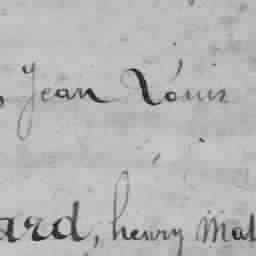 Jean Louis
ard, henry Mat